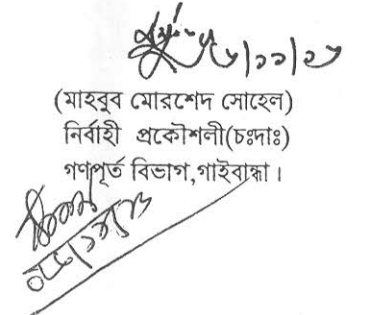 (মাহবুব মোরশেদ সোহেল)
নির্বাহী প্রকৌশলী(চঃদাঃ)
গণপূর্ত বিভাগ,গাইবান্ধা।